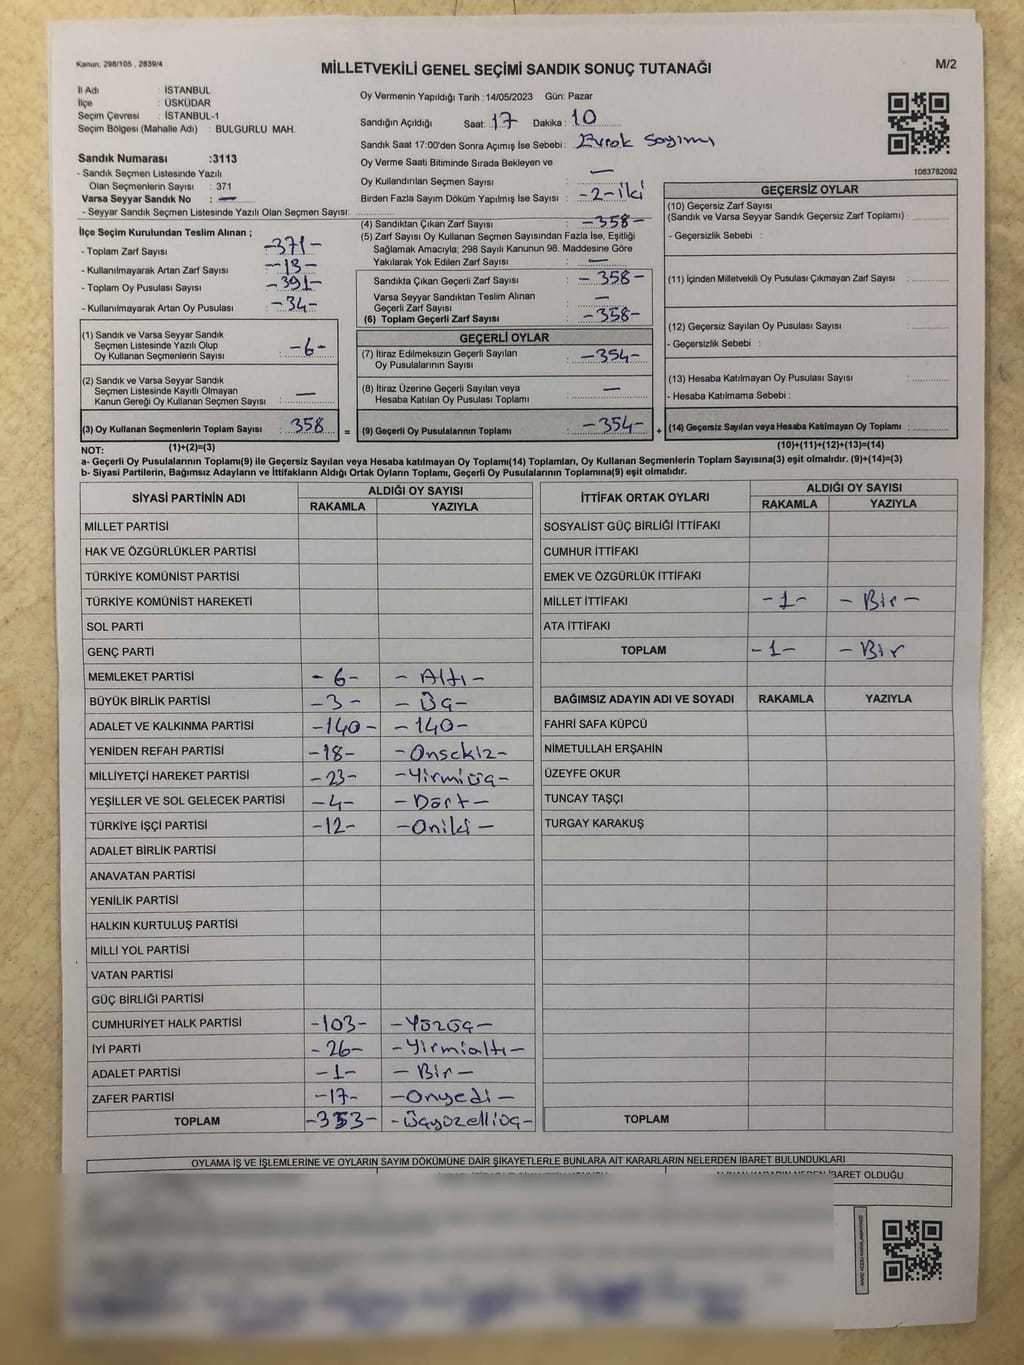 Kanun: 298/105 , 2839/4
MİLLETVEKİLİ GENEL SEÇİMİ SANDIK SONUÇ TUTANAĞI
M/2
İl Adı : İSTANBUL
İlçe : ÜSKÜDAR
Seçim Çevresi : İSTANBUL-1
Seçim Bölgesi (Mahalle Adı) : BULGURLU MAH.
Sandık Numarası :3113
- Sandık Seçmen Listesinde Yazılı
Olan Seçmenlerin Sayısı : 371
Varsa Seyyar Sandık No : —
- Seyyar Sandık Seçmen Listesinde Yazılı Olan Seçmen Sayısı:
İlçe Seçim Kurulundan Teslim Alınan ;
- Toplam Zarf Sayısı -371-
- Kullanılmayarak Artan Zarf Sayısı -13-
- Toplam Oy Pusulası Sayısı -391-
- Kullanılmayarak Artan Oy Pusulası : -34-
(1) Sandık ve Varsa Seyyar Sandık
Seçmen Listesinde Yazılı Olup
Oy Kullanan Seçmenlerin Sayısı : -6-
(2) Sandık ve Varsa Seyyar Sandık
Seçmen Listesinde Kayıtlı Olmayan
Kanun Gereği Oy Kullanan Seçmen Sayısı : —
(3) Oy Kullanan Seçmenlerin Toplam Sayısı : 358 =
(1)+(2)=(3)
Oy Vermenin Yapıldığı Tarih :14/05/2023 Gün: Pazar
Sandığın Açıldığı Saat: 17 Dakika: 10
Sandık Saat 17:00'den Sonra Açımış İse Sebebi: Evrak Sayımı
Oy Verme Saati Bitiminde Sırada Bekleyen ve
Oy Kullandırılan Seçmen Sayısı : —
Birden Fazla Sayım Döküm Yapılmış İse Sayısı : -2-iki
(4) Sandıktan Çıkan Zarf Sayısı : -358-
(5) Zarf Sayısı Oy Kullanan Seçmen Sayısından Fazla İse, Eşitliği
Sağlamak Amacıyla; 298 Sayılı Kanunun 98. Maddesine Göre
Yakılarak Yok Edilen Zarf Sayısı : —
Sandıkta Çıkan Geçerli Zarf Sayısı : -358-
Varsa Seyyar Sandıktan Teslim Alınan
Geçerli Zarf Sayısı : —
(6) Toplam Geçerli Zarf Sayısı : -358-
GEÇERLİ OYLAR
(7) İtiraz Edilmeksizin Geçerli Sayılan
Oy Pusulalarının Sayısı : -354-
(8) İtiraz Üzerine Geçerli Sayılan veya
Hesaba Katılan Oy Pusulası Toplamı : —
(9) Geçerli Oy Pusulalarının Toplamı : -354- +
1083782092
GEÇERSİZ OYLAR
(10) Geçersiz Zarf Sayısı
(Sandık ve Varsa Seyyar Sandık Geçersiz Zarf Toplamı) :
- Geçersizlik Sebebi :
(11) İçinden Milletvekili Oy Pusulası Çıkmayan Zarf Sayısı :
(12) Geçersiz Sayılan Oy Pusulası Sayısı :
- Geçersizlik Sebebi :
(13) Hesaba Katılmayan Oy Pusulası Sayısı :
- Hesaba Katılmama Sebebi :
(14) Geçersiz Sayılan veya Hesaba Katılmayan Oy Toplamı :
(10)+(11)+(12)+(13)=(14)
NOT:
a- Geçerli Oy Pusulalarının Toplamı(9) ile Geçersiz Sayılan veya Hesaba katılmayan Oy Toplamı(14) Toplamları, Oy Kullanan Seçmenlerin Toplam Sayısına(3) eşit olmalıdır. (9)+(14)=(3)
b- Siyasi Partilerin, Bağımsız Adayların ve İttifakların Aldığı Ortak Oyların Toplamı, Geçerli Oy Pusulalarının Toplamına(9) eşit olmalıdır.
SİYASİ PARTİNİN ADI ALDIĞI OY SAYISI
RAKAMLA YAZIYLA
MİLLET PARTİSİ
HAK VE ÖZGÜRLÜKLER PARTİSİ
TÜRKİYE KOMÜNİST PARTİSİ
TÜRKİYE KOMÜNİST HAREKETİ
SOL PARTİ
GENÇ PARTİ
MEMLEKET PARTİSİ -6- -Altı-
BÜYÜK BİRLİK PARTİSİ -3- -Üç-
ADALET VE KALKINMA PARTİSİ -140- -140-
YENİDEN REFAH PARTİSİ -18- -Onsekiz-
MİLLİYETÇİ HAREKET PARTİSİ -23- -Yirmiüç-
YEŞİLLER VE SOL GELECEK PARTİSİ -4- -Dört-
TÜRKİYE İŞÇİ PARTİSİ -12- -Oniki-
ADALET BİRLİK PARTİSİ
ANAVATAN PARTİSİ
YENİLİK PARTİSİ
HALKIN KURTULUŞ PARTİSİ
MİLLİ YOL PARTİSİ
VATAN PARTİSİ
GÜÇ BİRLİĞİ PARTİSİ
CUMHURİYET HALK PARTİSİ -103- -Yüzüç-
İYİ PARTİ -26- -Yirmialtı-
ADALET PARTİSİ -1- -Bir-
ZAFER PARTİSİ -17- -Onyedi-
TOPLAM -353- -Üçyüzelliüç-
İTTİFAK ORTAK OYLARI ALDIĞI OY SAYISI
RAKAMLA YAZIYLA
SOSYALİST GÜÇ BİRLİĞİ İTTİFAKI
CUMHUR İTTİFAKI
EMEK VE ÖZGÜRLÜK İTTİFAKI
MİLLET İTTİFAKI -1- -Bir-
ATA İTTİFAKI
TOPLAM -1- -Bir
BAĞIMSIZ ADAYIN ADI VE SOYADI RAKAMLA YAZIYLA
FAHRİ SAFA KÜPCÜ
NİMETULLAH ERŞAHİN
ÜZEYFE OKUR
TUNCAY TAŞÇI
TURGAY KARAKUŞ
TOPLAM
OYLAMA İŞ VE İŞLEMLERİNE VE OYLARIN SAYIM DÖKÜMÜNE DAİR ŞİKAYETLERLE BUNLARA AİT KARARLARIN NELERDEN İBARET BULUNDUKLARI
İBARET OLDUĞU